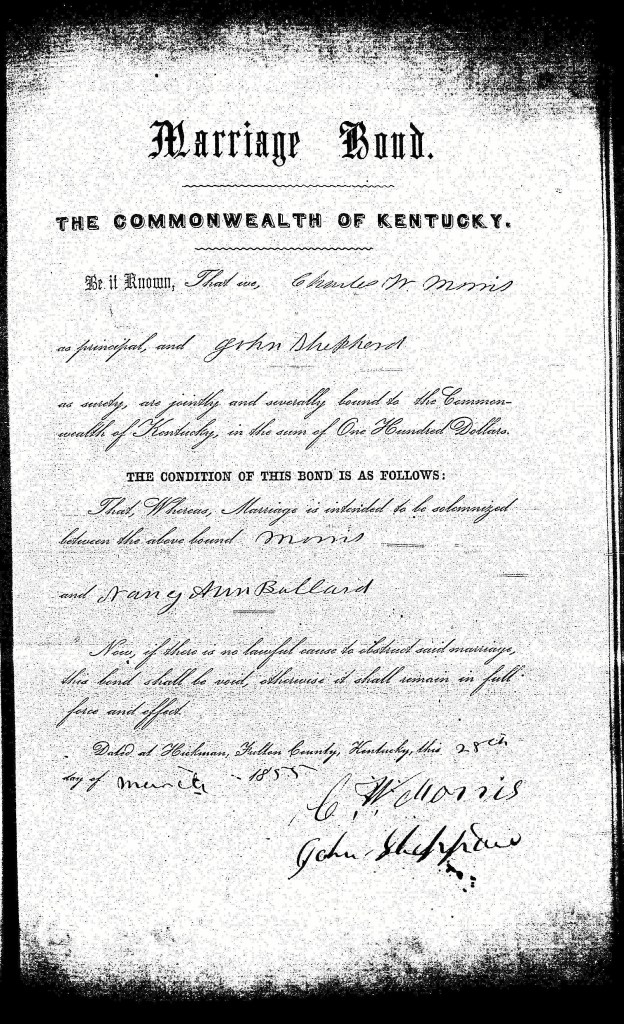 Marriage Bond.
THE COMMONWEALTH OF KENTUCKY.
Be it Known, That we, Charles W. Morris
as principal, and John Shepherd
as surety, are jointly and severally bound to the Common-
wealth of Kentucky, in the sum of One Hundred Dollars.
THE CONDITION OF THIS BOND IS AS FOLLOWS:
That, Whereas, Marriage is intended to be solemnized
between the above bound Morris
and Nancy Ann Bullard
Now, if there is no lawful cause to obstruct said marriage,
this bond shall be void, otherwise it shall remain in full
force and effect.
Dated at Hickman, Fulton County, Kentucky, this 28th
day of March 1855
C. W. Morris
John